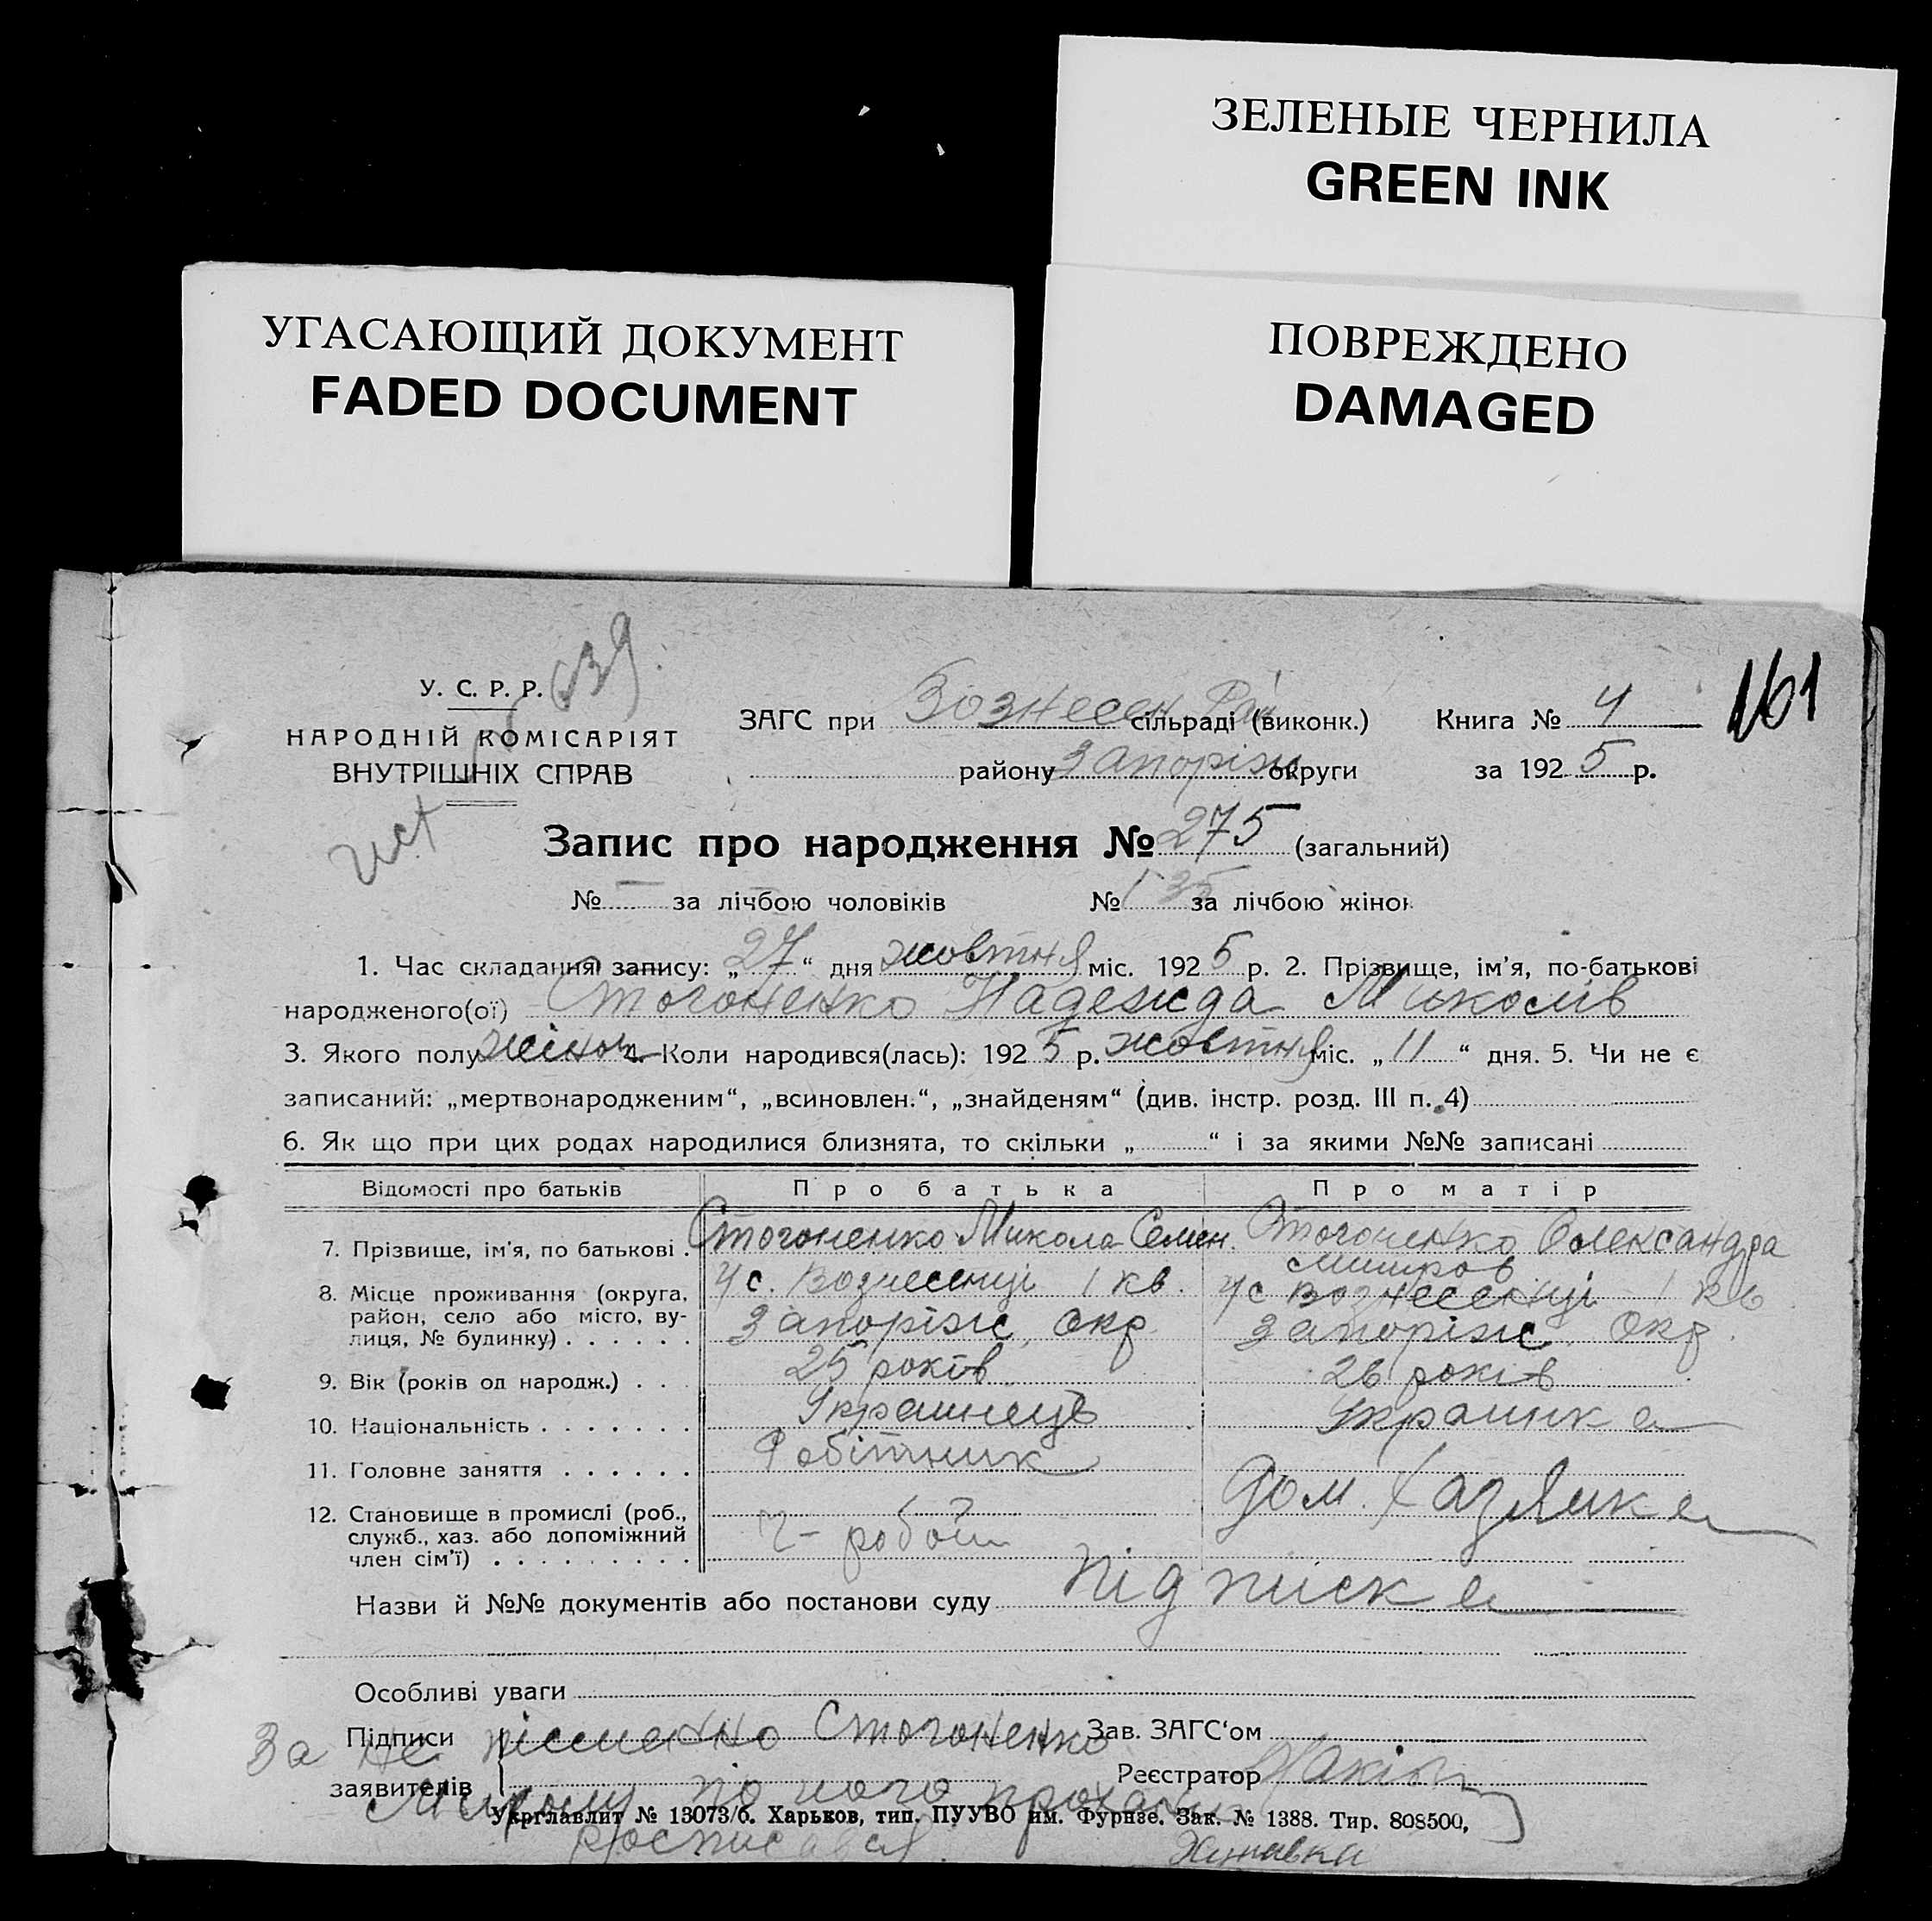 ЗЕЛЕНЫЕ ЧЕРНИЛА
GREEN INK
УГАСАЮЩИЙ ДОКУМЕНТ
FADED DOCUMENT
ПОВРЕЖДЕНО
DAMAGED
161
У. С. Р. Р.
НАРОДНІЙ КОМІСАРІЯТ
ВНУТРІШНІХ СПРАВ
ЗАГС при Вознесен Рай сільраді (виконк.) Книга № 4
району Запоріж округи за 1925 р.
Запис про народження № 275 (загальний)
№ — за лічбою чоловіків № 135 за лічбою жінок
1. Час складання запису: „27“ дня жовтня міс. 1925 р. 2. Прізвище, ім’я, по-батькові
народженого(ої) Стогоненко Надежда Миколів
3. Якого полу жіноч 4. Коли народився(лась): 1925 р. жовтня міс. „11“ дня. 5. Чи не є
записаний: „мертвонародженим“, „всиновлен.“, „знайденям“ (див. інстр. розд. III п. 4)
6. Як що при цих родах народилися близнята, то скільки „ “ і за якими №№ записані
Відомості про батьків Про батька Про матір
7. Прізвище, ім’я, по батькові . Стогоненко Микола Семен. Стогоненко Олександра
8. Місце проживання (округа, район, село або місто, вулиця, № будинку) . . . . . . с. Вознесенці 1 кв. с Вознесенці 1 кв
Запоріж. Окр. Запоріж. Окр.
9. Вік (років од народж.) . . . 25 років 26 років
10. Національність . . . . . . . Українець Українка
11. Головне заняття . . . . . . Робітник
12. Становище в промислі (роб., служб., хаз. або допоміжний член сім’ї) . . . . . . . . . робот Дом. Хазяйка
Назви й №№ документів або постанови суду Підписка
Особливі уваги
Підписи За не пісменно Стогоненко Зав. ЗАГС‘ом
заявителів по його проханню Реєстратор
Укрглавлит № 13073/б. Харьков, тип. ПУУВО им. Фрунзе. Зак. № 1388. Тир. 808500,
росписався